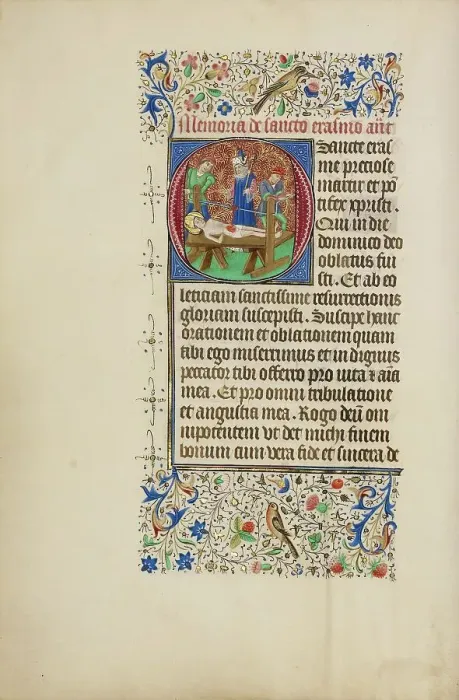 Memoria de sancto erasmo ant
Sancte eras
me preciose
martir et po
tifex xpristi.
Qui in die
dominico deo
oblatus fui
sti. Et ab eo
leticiam sanctissime resurrectionis
gloriam suscepisti. Suscipe hanc
orationem et oblationem quam
tibi ego miserrimus et in dignus
peccator tibi offerro pro vita & aia
mea. Et pro omni tribulatione
et angustia mea. Rogo deū om
nipotentem vt det michi finem
bonum cum vera fide et sincera de